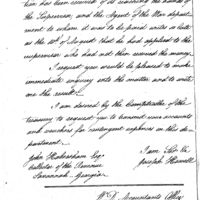 has been received of its reaching the hands of
the Supervisor, and the Agent of the War depart-
ment to whom it was to be paid writes so late
as the 10th of August that he had applied to the
supervisor who had not then received the money.
I request you would be pleased to make
immediate enquiry into the matter, and to write
me the result.
I am desired by the Comptroller of the
treasury to request you to transmit your accounts
and vouchers for contingent expences in this de-
partment.
I am Sir &c
John Habersham Esqr.
Joseph Howell
Collector of the Revenue
Savannah Georgia
W.D. Accountants Office